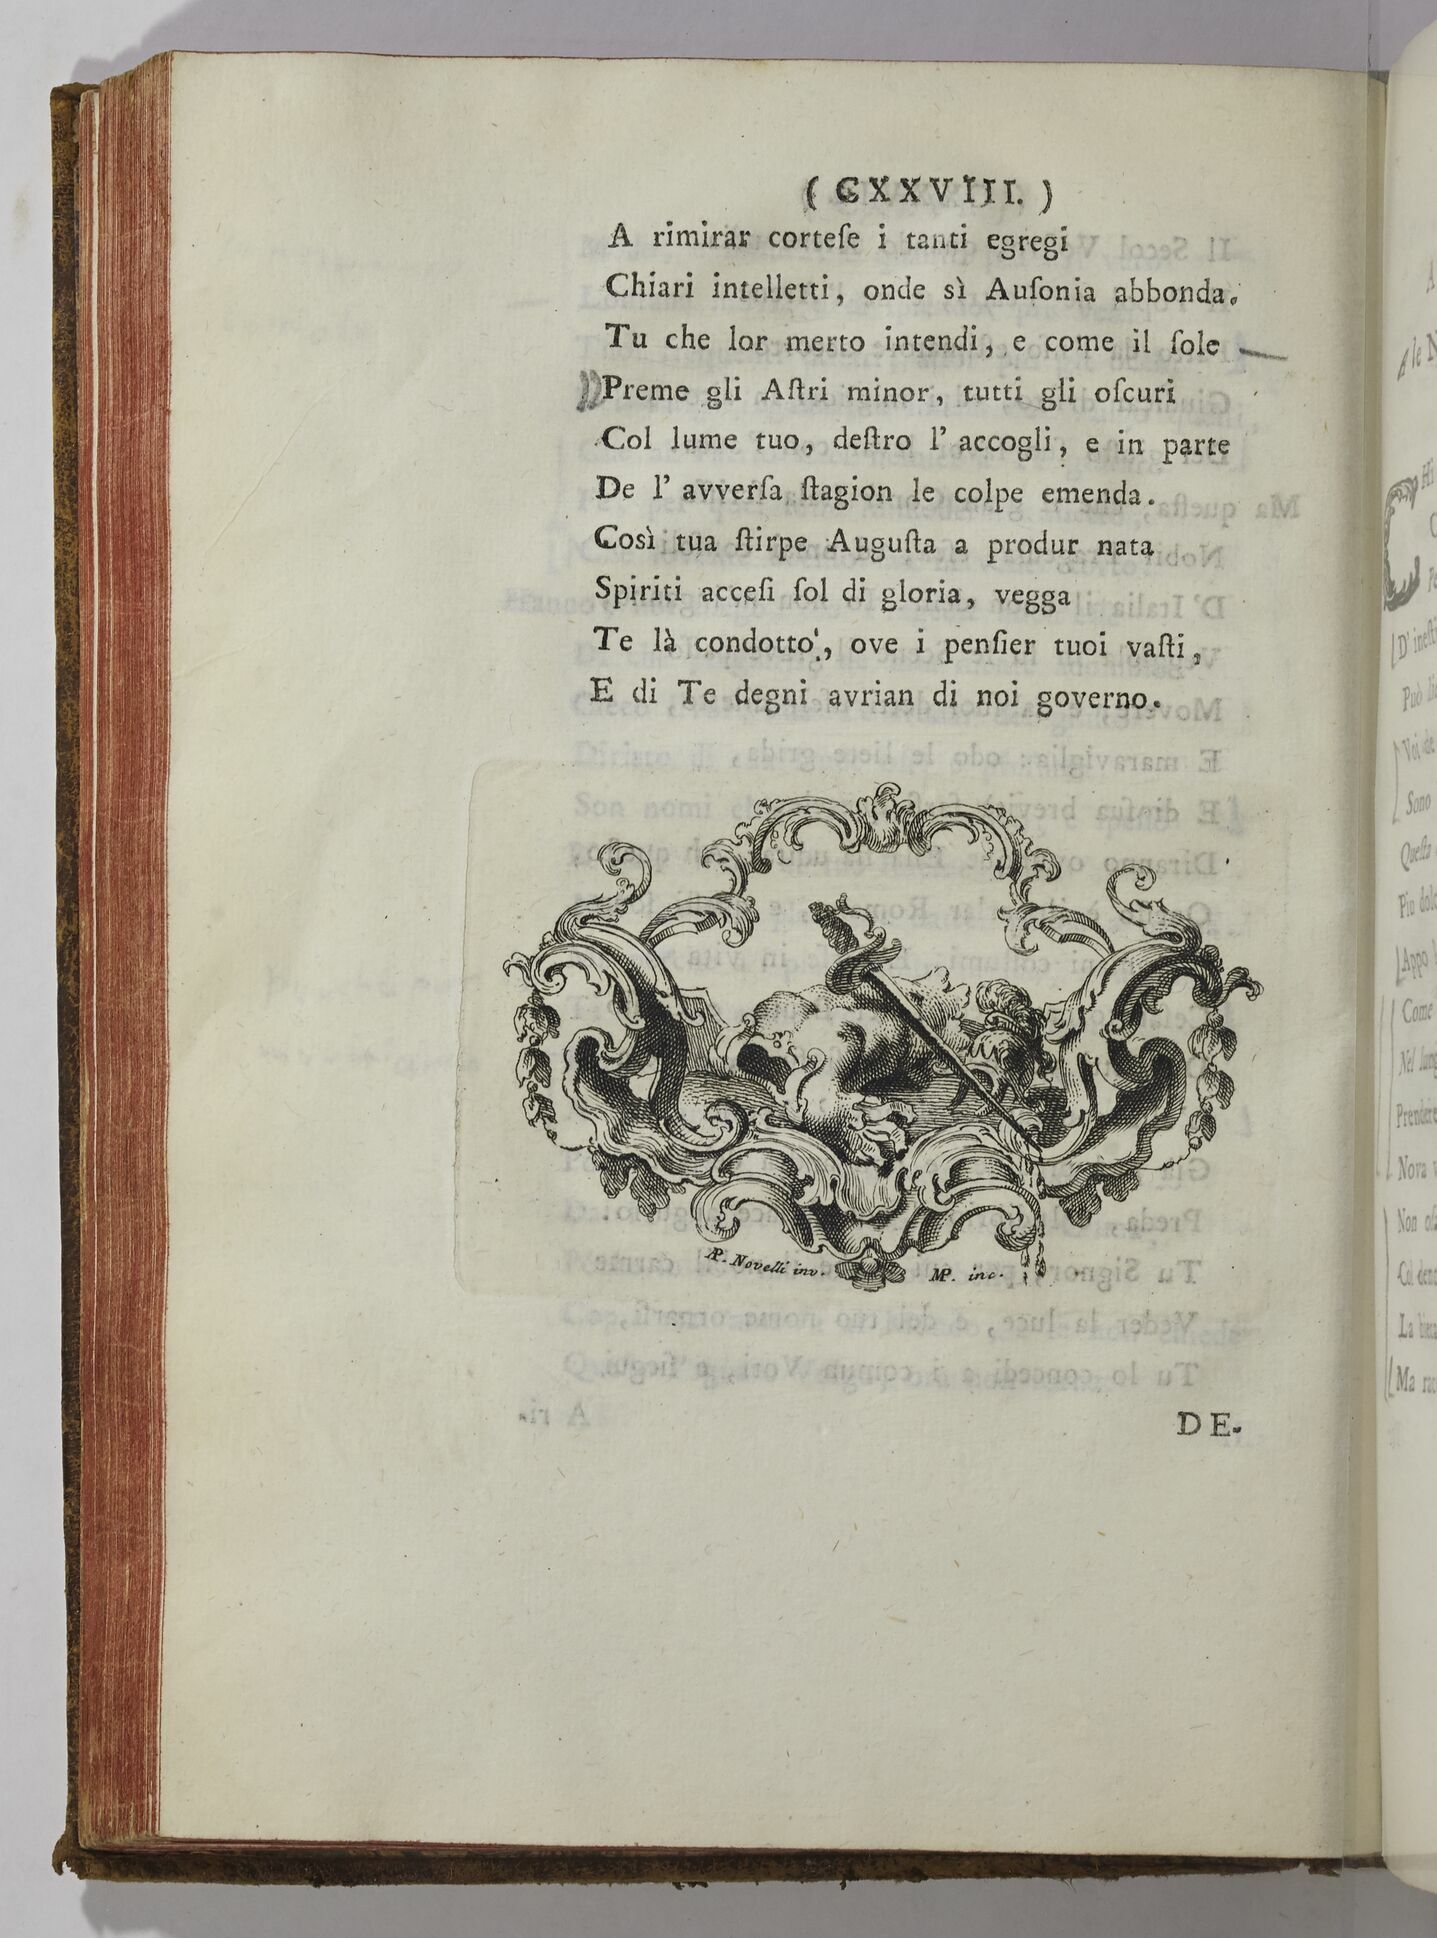 ( CXXVIII. )
A rimirar corteſe i tanti egregi
Chiari intelletti, onde sì Auſonia abbonda.
Tu che lor merto intendi, e come il ſole
Preme gli Aſtri minor, tutti gli oſcuri
Col lume tuo, deſtro l' accogli, e in parte
De l' avverſa ſtagion le colpe emenda.
Così tua ſtirpe Auguſta a produr nata
Spiriti acceſi ſol di gloria, vegga
Te là condotto, ove i penſier tuoi vaſti,
E di Te degni avrian di noi governo.
AP. Novelli inv.
MP. inc.
DE-
D' ineſti
Può
Voi
Sono
Queſta
Più dolc
Appo
Come
Nel lung
Prendere
Nova
Non
Col
La
Ma